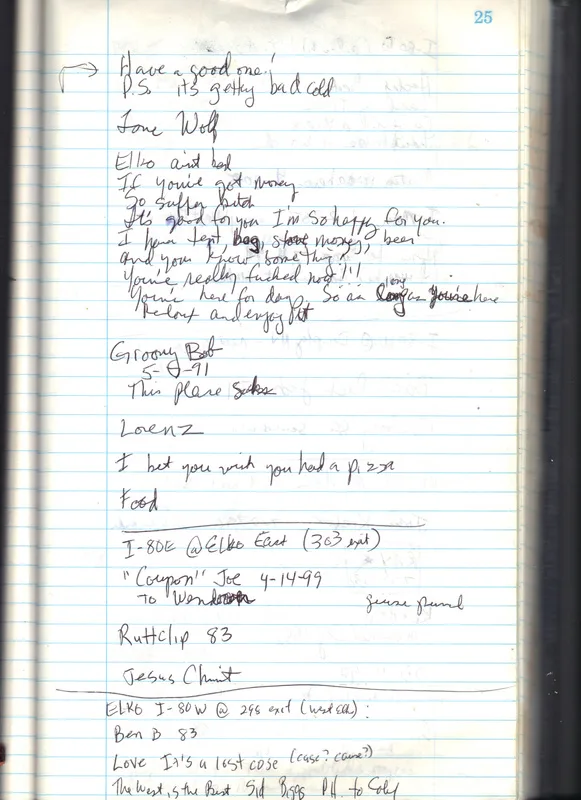 25
Have a good one!
P.S. it's getting bad cold
Lone Wolf
Elko ain't bad
If you've got money
So suffer bitch
It's good for you I'm so happy for you.
I have tent, bag, stove money, beer
and you know something?
You're really fucked now!!!
You're here for days, So as long as you're here
Relax and enjoy it
Groovy Bob
5- -91
This place sucks
Lorenz
I bet you wish you had a pizza
Food
I-80E @ Elko East (303 exit)
"Coupon" Joe 4-14-99
To
Ruttclip 83
Jesus Christ
ELKO I-80W @ 298 exit (west Elko):
Ben B 83
Love It's a lost cose (case? cause?)
The West is the Best Sid Biggs PH. to Colo